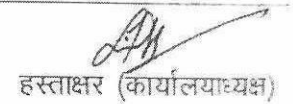 हस्ताक्षर (कार्यालयाध्यक्ष)